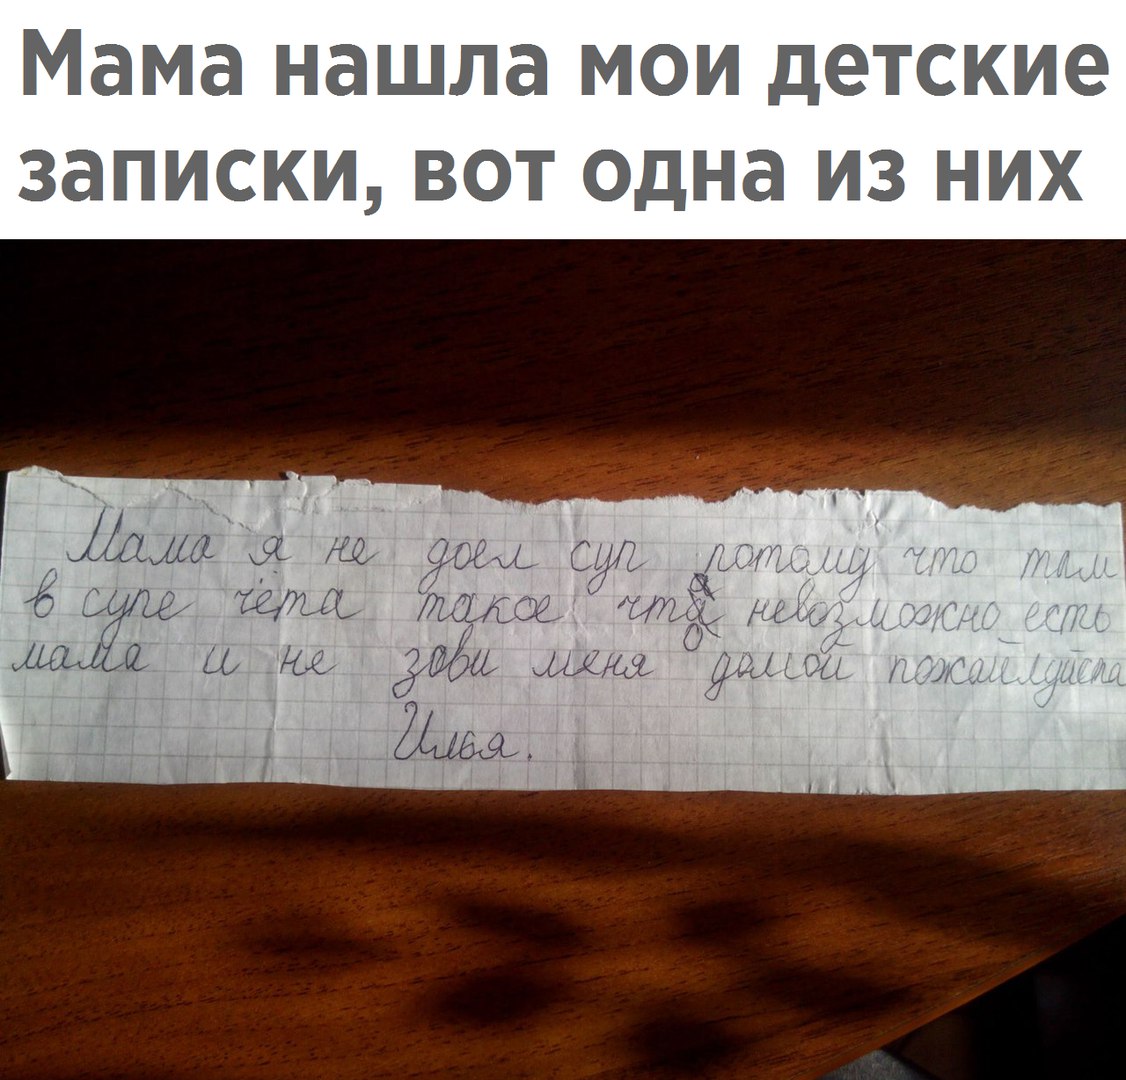 Мама нашла мои детские
записки, вот одна из них
Мама я не доел суп потому что там
в супе чёта такое что невозможно есть
мама и не зови меня домой пожайлуйста
Илья.